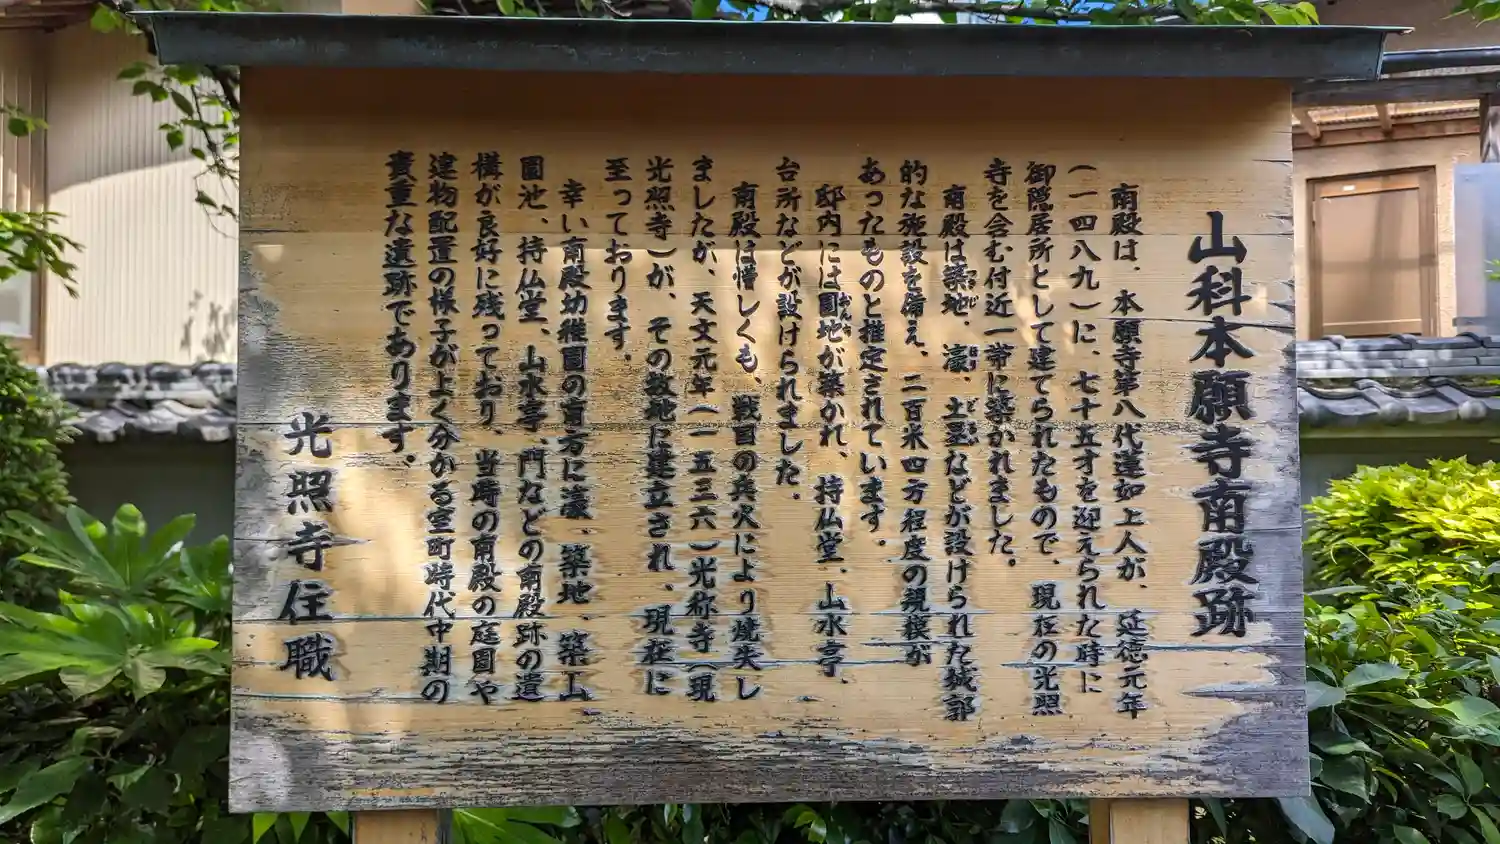 山科本願寺南殿跡
南殿は、本願寺第八代蓮如上人が、延徳元年
(一四八九)に、七十五才を迎えられた時に
御隠居所として建てられたもので、現在の光照
寺を含む付近一帯に築かれました。
南殿は築地、濠、土塁などが設けられた城郭
的な施設を備え、二百米四方程度の規模が
あったものと推定されています。
邸内には園地が築かれ、持仏堂、山水亭、
台所などが設けられました。
南殿は惜しくも、戦国の兵火により焼失し
ましたが、天文元年(一五三六)光称寺(現
光照寺)が、その敷地に建立され、現在に
至っております。
幸い南殿幼稚園の育方に濠、築地、築山
園池、持仏堂、山水亭、門などの南殿跡の遺
構が良好に残っており、当時の南殿の庭園や
建物配置の様子が上く分かる室町時代中期の
貴重な遺跡であります。
光照寺住職